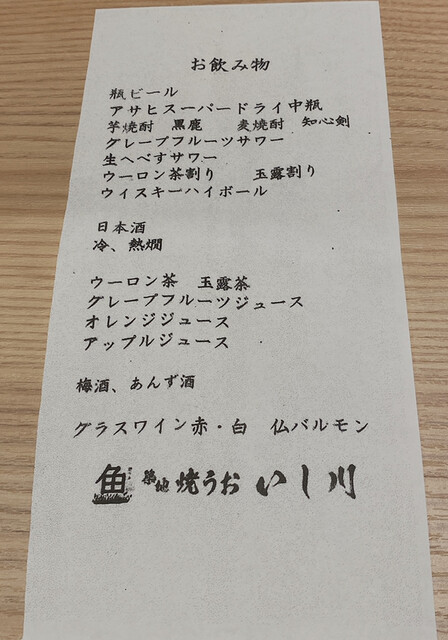 お飲み物
瓶ビール
アサヒスーパードライ中瓶
芋焼酎 黒鹿 麦焼酎 知心剣
グレープフルーツサワー
生へべすサワー
ウーロン茶割り 玉露割り
ウィスキーハイボール
日本酒
冷、熱燗
ウーロン茶 玉露茶
グレープフルーツジュース
オレンジジュース
アップルジュース
梅酒、あんず酒
グラスワイン赤・白 仏バルモン
魚 築地 焼うお いし川